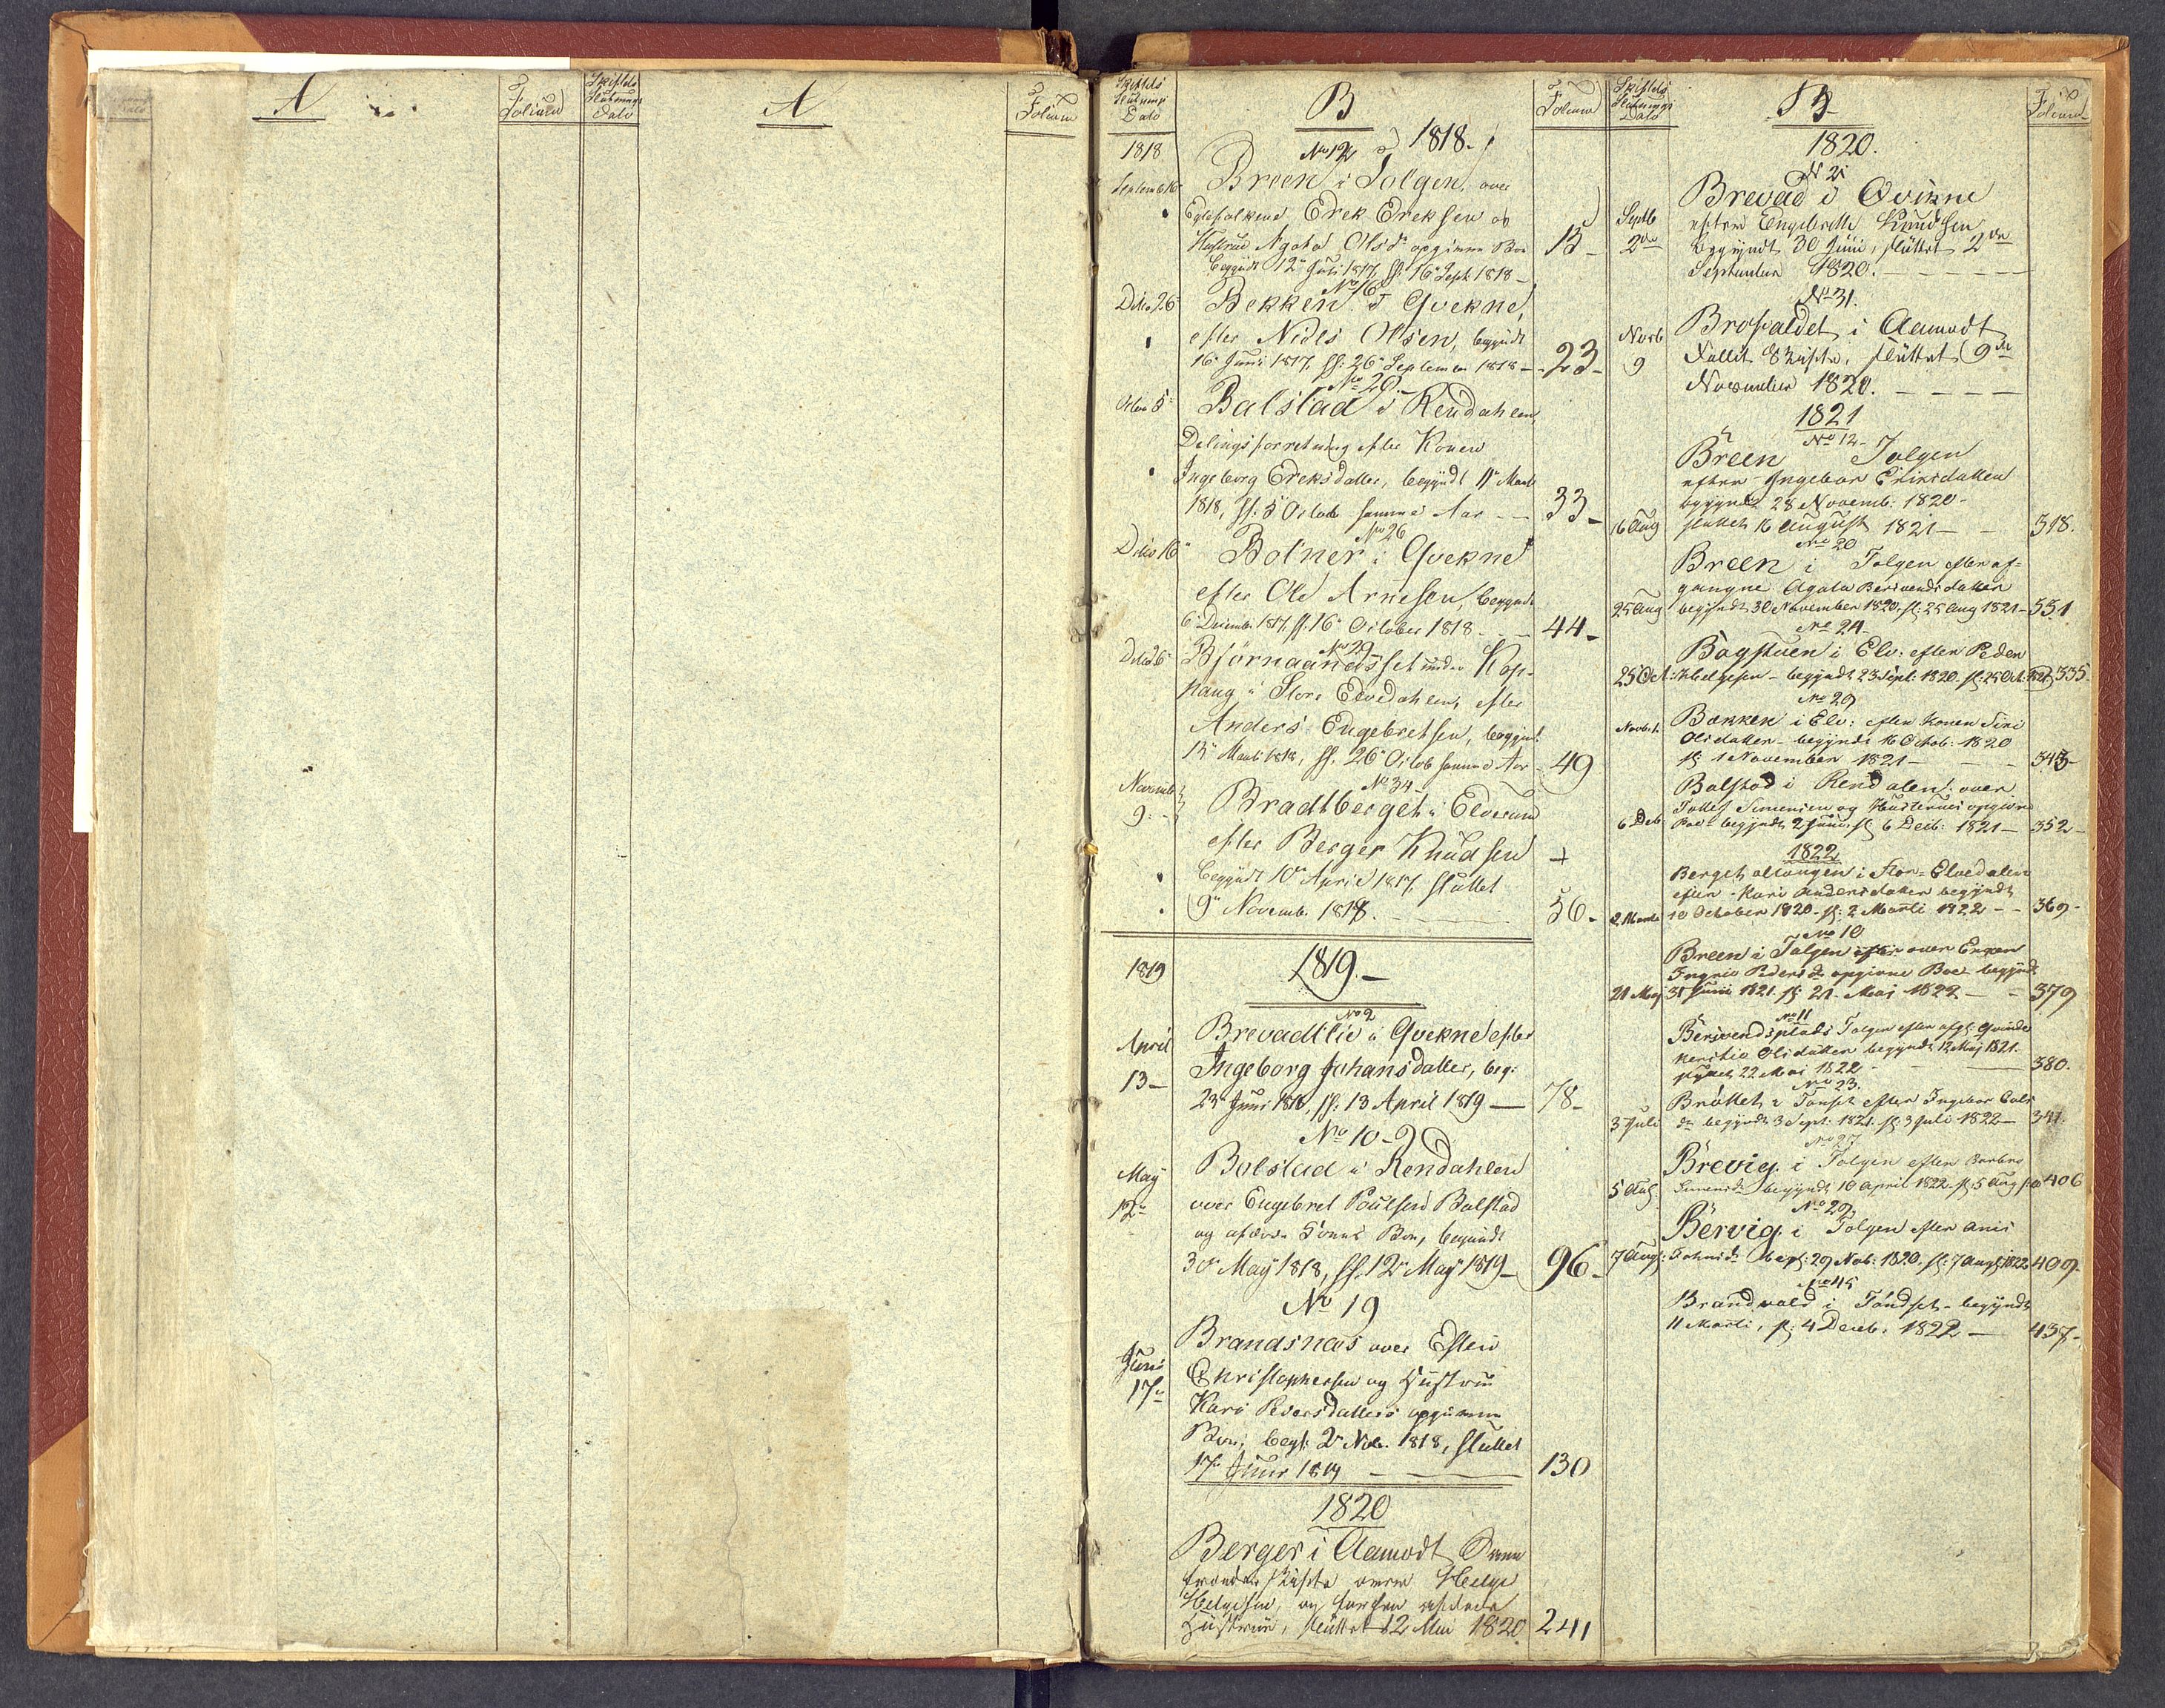 A
Folium
Skiftets
Slutnings
Dato
A
Folium
Skiftets
Slutnings
Dato
B
Folium
1818
No 12 1818.
Septemb 16
Breen i Tolgen, over
Erek Ereksen og
Hustrue Agata Olsd opgivne Boe
begyndt 12 Juli 1817, sl: 16 Sept 1818 -
15 -
No 16
Ditto 26
Bekken i Qvekne,
efter Niels Olsen, begyndt
16 Juni 1817, sl: 26 September 1818 -
23 -
No 20 -
Octbr 5
Balstad i Rendahlen
Delingsforretning efter Konen
Ingeborg Ereksdatter, begyndt 11 Marti
1818, sl. 5 Octob samme Aar - -
33 -
No 26
Ditto 16
Botner i Qvekne
efter Ole Arnesen, begyndt
6 Decemb. 1817, sl. 16 October 1818 - -
44 -
No 29
Ditto 26
Bjørnaandsset under Kop-
hang i Store Elvedahlen, efter
Anders Engebretsen, begyndt
13 Marti 1818, sl. 26 Octob samme Aar -
49
No 34
Novemb
9. -
Bradtberget i Elverum
efter Berger Knudsen
begyndt 10 April 1817, sluttet
9 Novemb. 1818.
56 -
1819
1819. -
No 2
April
13 -
Brevadlie i Qvekne efter
Ingeborg Johansdatter, beg:
23 Juni 1818, sl. 13 April 1819 -
78 -
No 10 - 9
May
12
Bolstad i Rendahlen
over Engebret Poulsen Balstad
og afdøde Kones Boe, begyndt
30 May 1818, sl. 12 May 1819 -
96 -
No 19
Juni
17
Brandsnæs over Esten
Christophersen og Hustrue
Kari Pedersdatters opgivne
Boe, begt: 2 Nob. 1818, sluttet
17 Juni 1819
130
1820
Berger i Aamodt
Skifte over Helge
Helgesen, og afdøde
Hustrue, sluttet 12 Mai 1820
241
Skiftets
Slutnings
Dato
B
Folium
1820.
No 21
Septb
2de
Brevad i Qvikne
efter Engebreth Knudsen
begyndt 30 Juni, sluttet 2de
September 1820. - - -
No 31.
Novb
9
Brofaldet i Aamodt
Fallit Skifte, sluttet 9de
November 1820. - - -
1821
No 12 -
Breen Tolgen
efter Ingebor Erixsdatter
begyndt 28 Novemb: 1820 -
16 Aug
sluttet 16 August 1821 - -
318.
No 20
Breen i Tolgen efter af-
gangne Agata Berivendsdatter
25 Aug
begyndt 30 November 1820, sl: 25 Aug 1821 -
331
No 24 -
Bagstuen i Elv: efter Peder
25 Oct:
Helgesen - begyndt 23 Sept: 1820. sl: 25 Oct. 1821
335 -
No 29
Novb. 1.
Bakken i Elv: efter Konen Siri
Olsdatter - begyndt 16 Octob: 1820
sl: 1 November 1821 - - -
343 -
Balstad i Rendalen: over
Tollef Simensen og Hustrues opgivne
6 Deb
Boe - begyndt 2 Juni, sl: 6 Decb: 1821 -
352 -
1822
Berget i Stor-Elvedalen
efter Kari Andersdatter begyndt
2 Marti
10 October 1820 - sl: 2 Marti 1822 - -
369 -
No 10
Breen i Tolgen over Enken
Ingrid Pedersd opgivne Boe - begyndt
21 Maj
31 Juni 1821. sl: 21. Maj 1822 - -
379
No 11
Berivendsplads Tolgen efter afg: Qvinde
Olsdatter begyndt 12 Maj 1821.
22 Mai 1822 -
380.
No 23.
Brøttet i Tønset efter Ingebor
3 Juli
begyndt 3 Sept: 1821. sl: 3 Juli 1822 -
341.
No 27
Brevig i Tolgen efter Barbro
5 Aug
Simensd begyndt 16 April 1822. sl: 5 Aug
406
No 29
Bervig i Tolgen efter Anis
7 Aug:
Johnsd begt: 29 Nob: 1820. sl: 7 Aug: 1822
409 -
No 45
Brandvold i Tøndset - begyndt
11 Marti, sl: 4 Decb: 1822 -
437 -